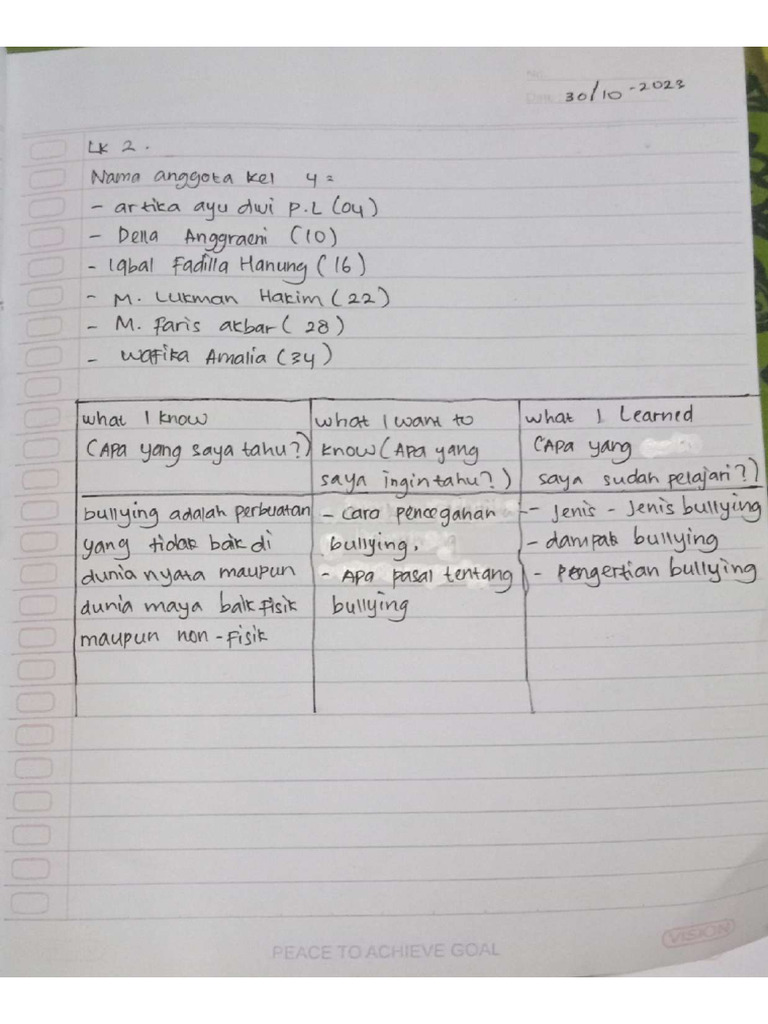 No.
Date 30/10-2023
LK 2.
Nama anggota kel 4 =
- artika ayu dwi P.L (04)
- Della Anggraeni (10)
- Iqbal Fadilla Hanung (16)
- M. Lukman Hakim (22)
- M. Faris akbar (28)
- Wafika Amalia (34)
what I know
(APa yang saya tahu?)
bullying adalah perbuatan
yang tidak baik di
dunia nyata maupun
dunia maya baik fisik
maupun non-fisik
what I want to
know (APa yang
saya ingin tahu?)
- Cara pencegahan
bullying.
- APa pasal tentang
bullying
what I Learned
(APa yang
saya sudah pelajari?)
- Jenis - Jenis bullying
- dampak bullying
- Pengertian bullying
PEACE TO ACHIEVE GOAL
VISION